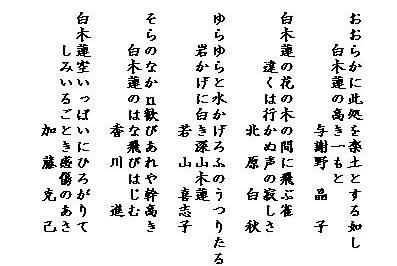 おおらかに此処を楽土とする如し
白木蓮の高き一もと
与謝野 晶子
白木蓮の花の木の間に飛ぶ雀
遠くは行かぬ声の寂しさ
北原 白秋
ゆらゆらと水かげろふのうつりたる
岩かげに白き深山木蓮
若山 喜志子
そらのなかп歓びあれや幹高き
白木蓮のはな飛びはじむ
香川 進
白木蓮空いっぱいにひろがりて
しみいるごとき感傷のあさ
加藤 克己